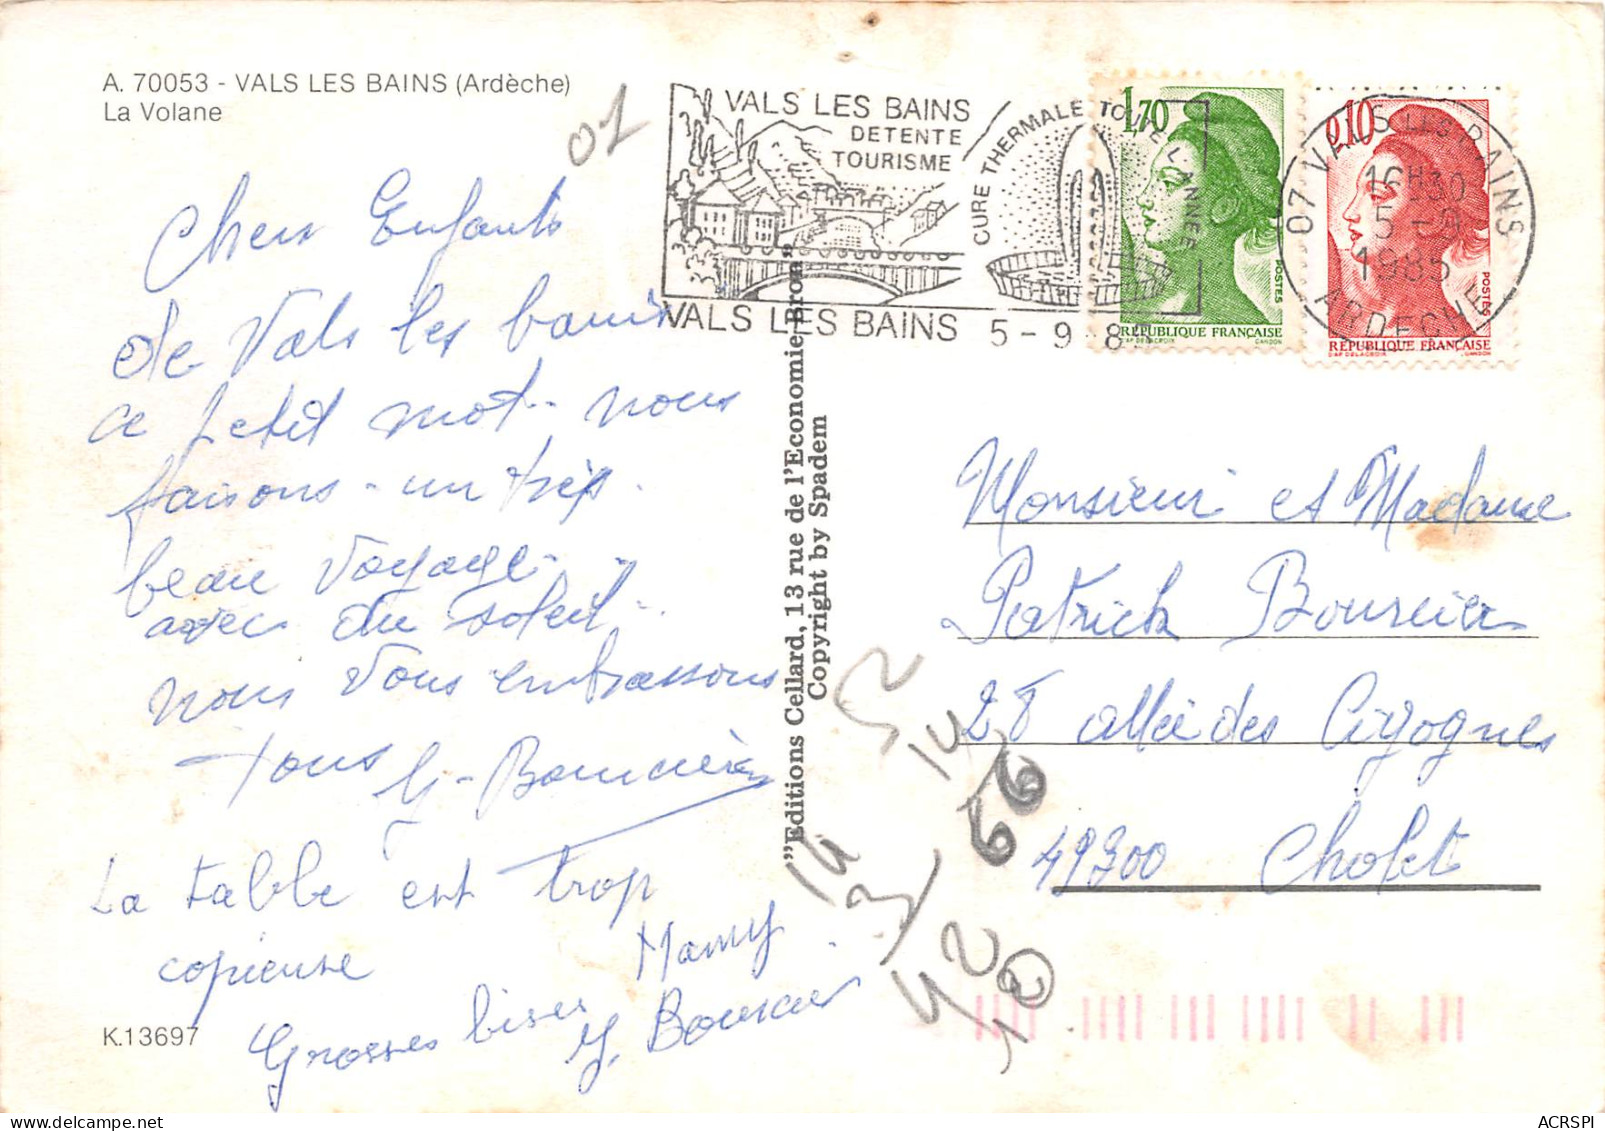 A. 70053 - VALS LES BAINS (Ardèche)
La Volane
01
Chers Enfants
de Vals les bains
ce petit mot. nous
faisons - un très.
beau voyage. -
avec du soleil..
nous vous embrassons
tous G. Boursier
La table est trop
copieuse
Mamy
Grosses bises
Y. Boursier
K.13697
VALS LES BAINS
DETENTE
TOURISME
CURE THERMALE TOUTE L'ANNEE
VALS LES BAINS 5-9-8
1,70
POSTES
RÉPUBLIQUE FRANÇAISE
D'AP DELACROIX GANDON
0,10
POSTES
RÉPUBLIQUE FRANÇAISE
D'AP DELACROIX GANDON
07 VALS-LES-BAINS
16H30
5-9
1985
ARDECHE
"Editions Cellard, 13 rue de l'Economie, Bron"
Copyright by Spadem
Monsieur et Madame
Patrick Boursier
28 allée des Cigognes
49300 Cholet
52
14
66
99
14
3
42
10
ACRSPI